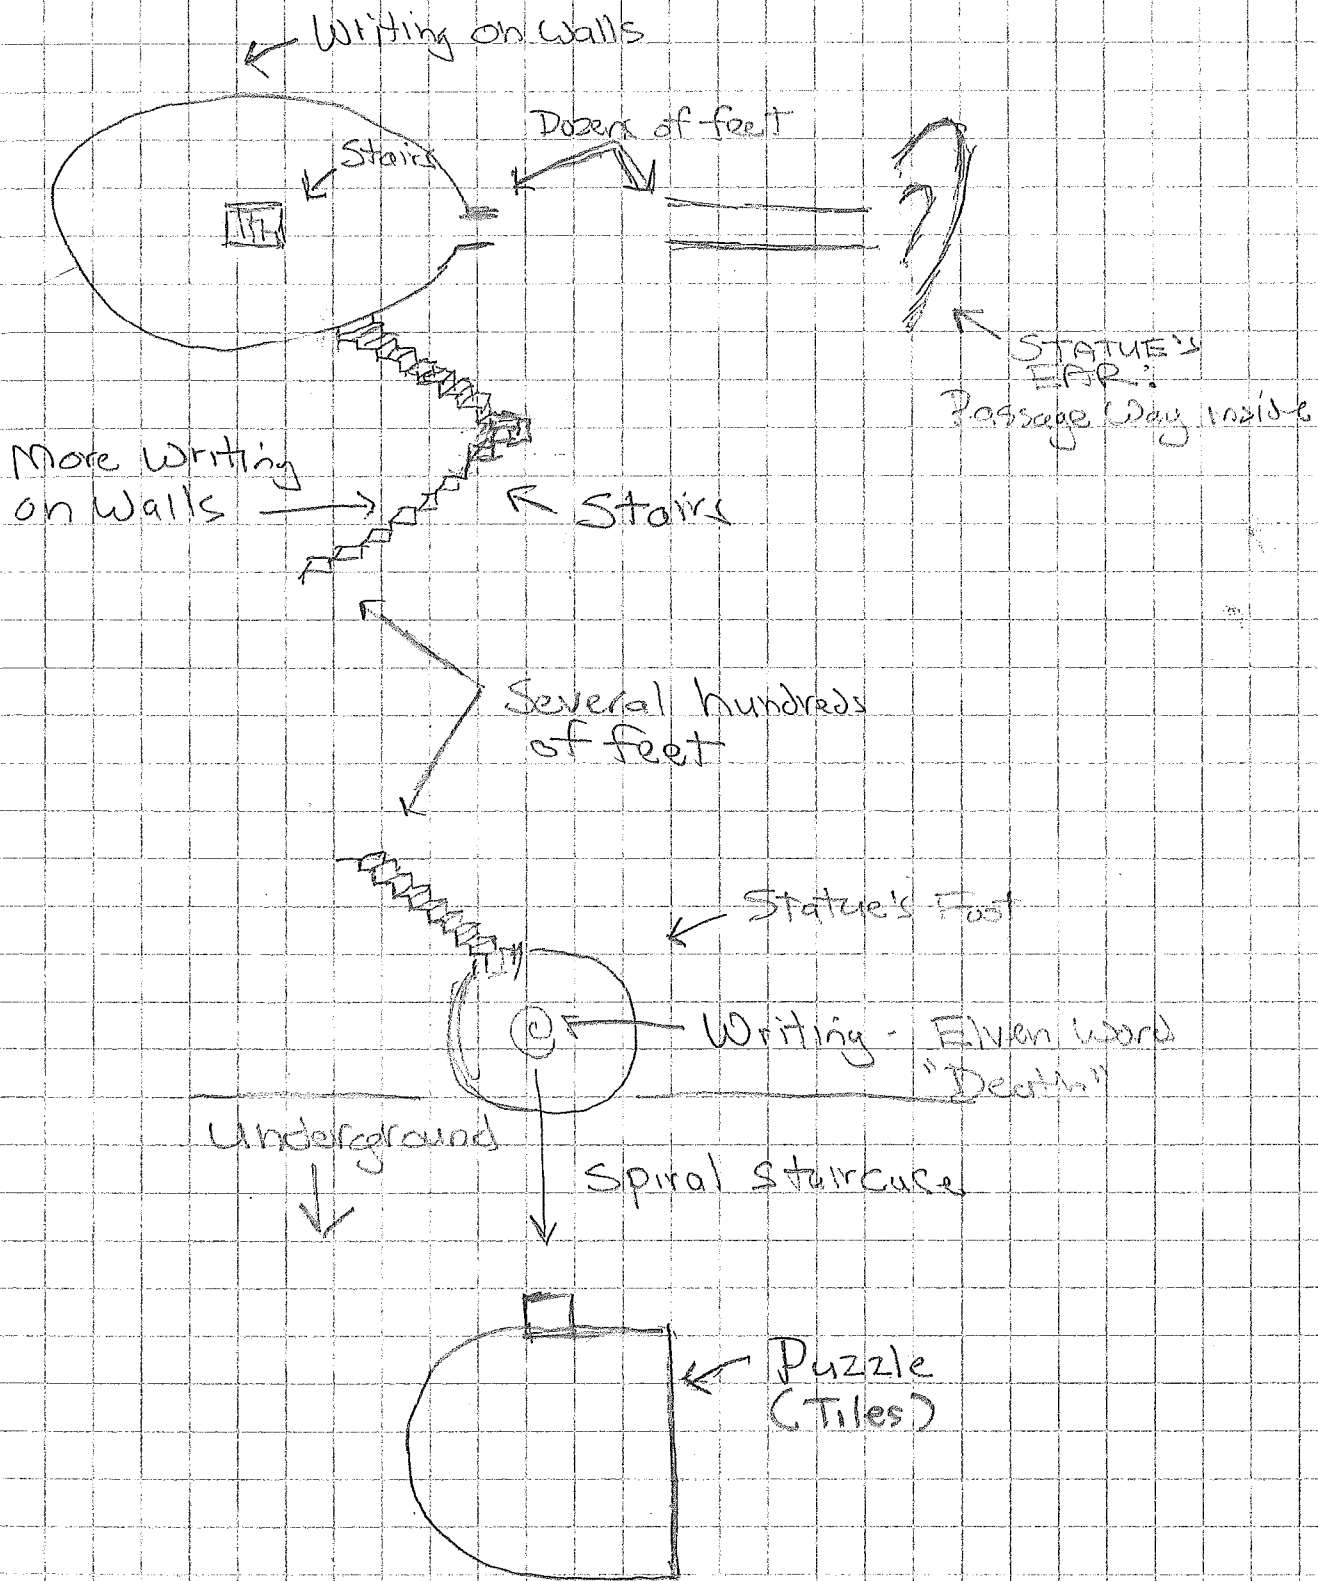 Writing on Walls
Dozens of feet
Stairs
STATUE'S
EAR:
Passage Way inside
More Writing
on Walls
Stairs
Several hundreds
of feet
Statue's Foot
Writing - Elven word
"Death"
Underground
Spiral staircase
Puzzle
(Tiles)